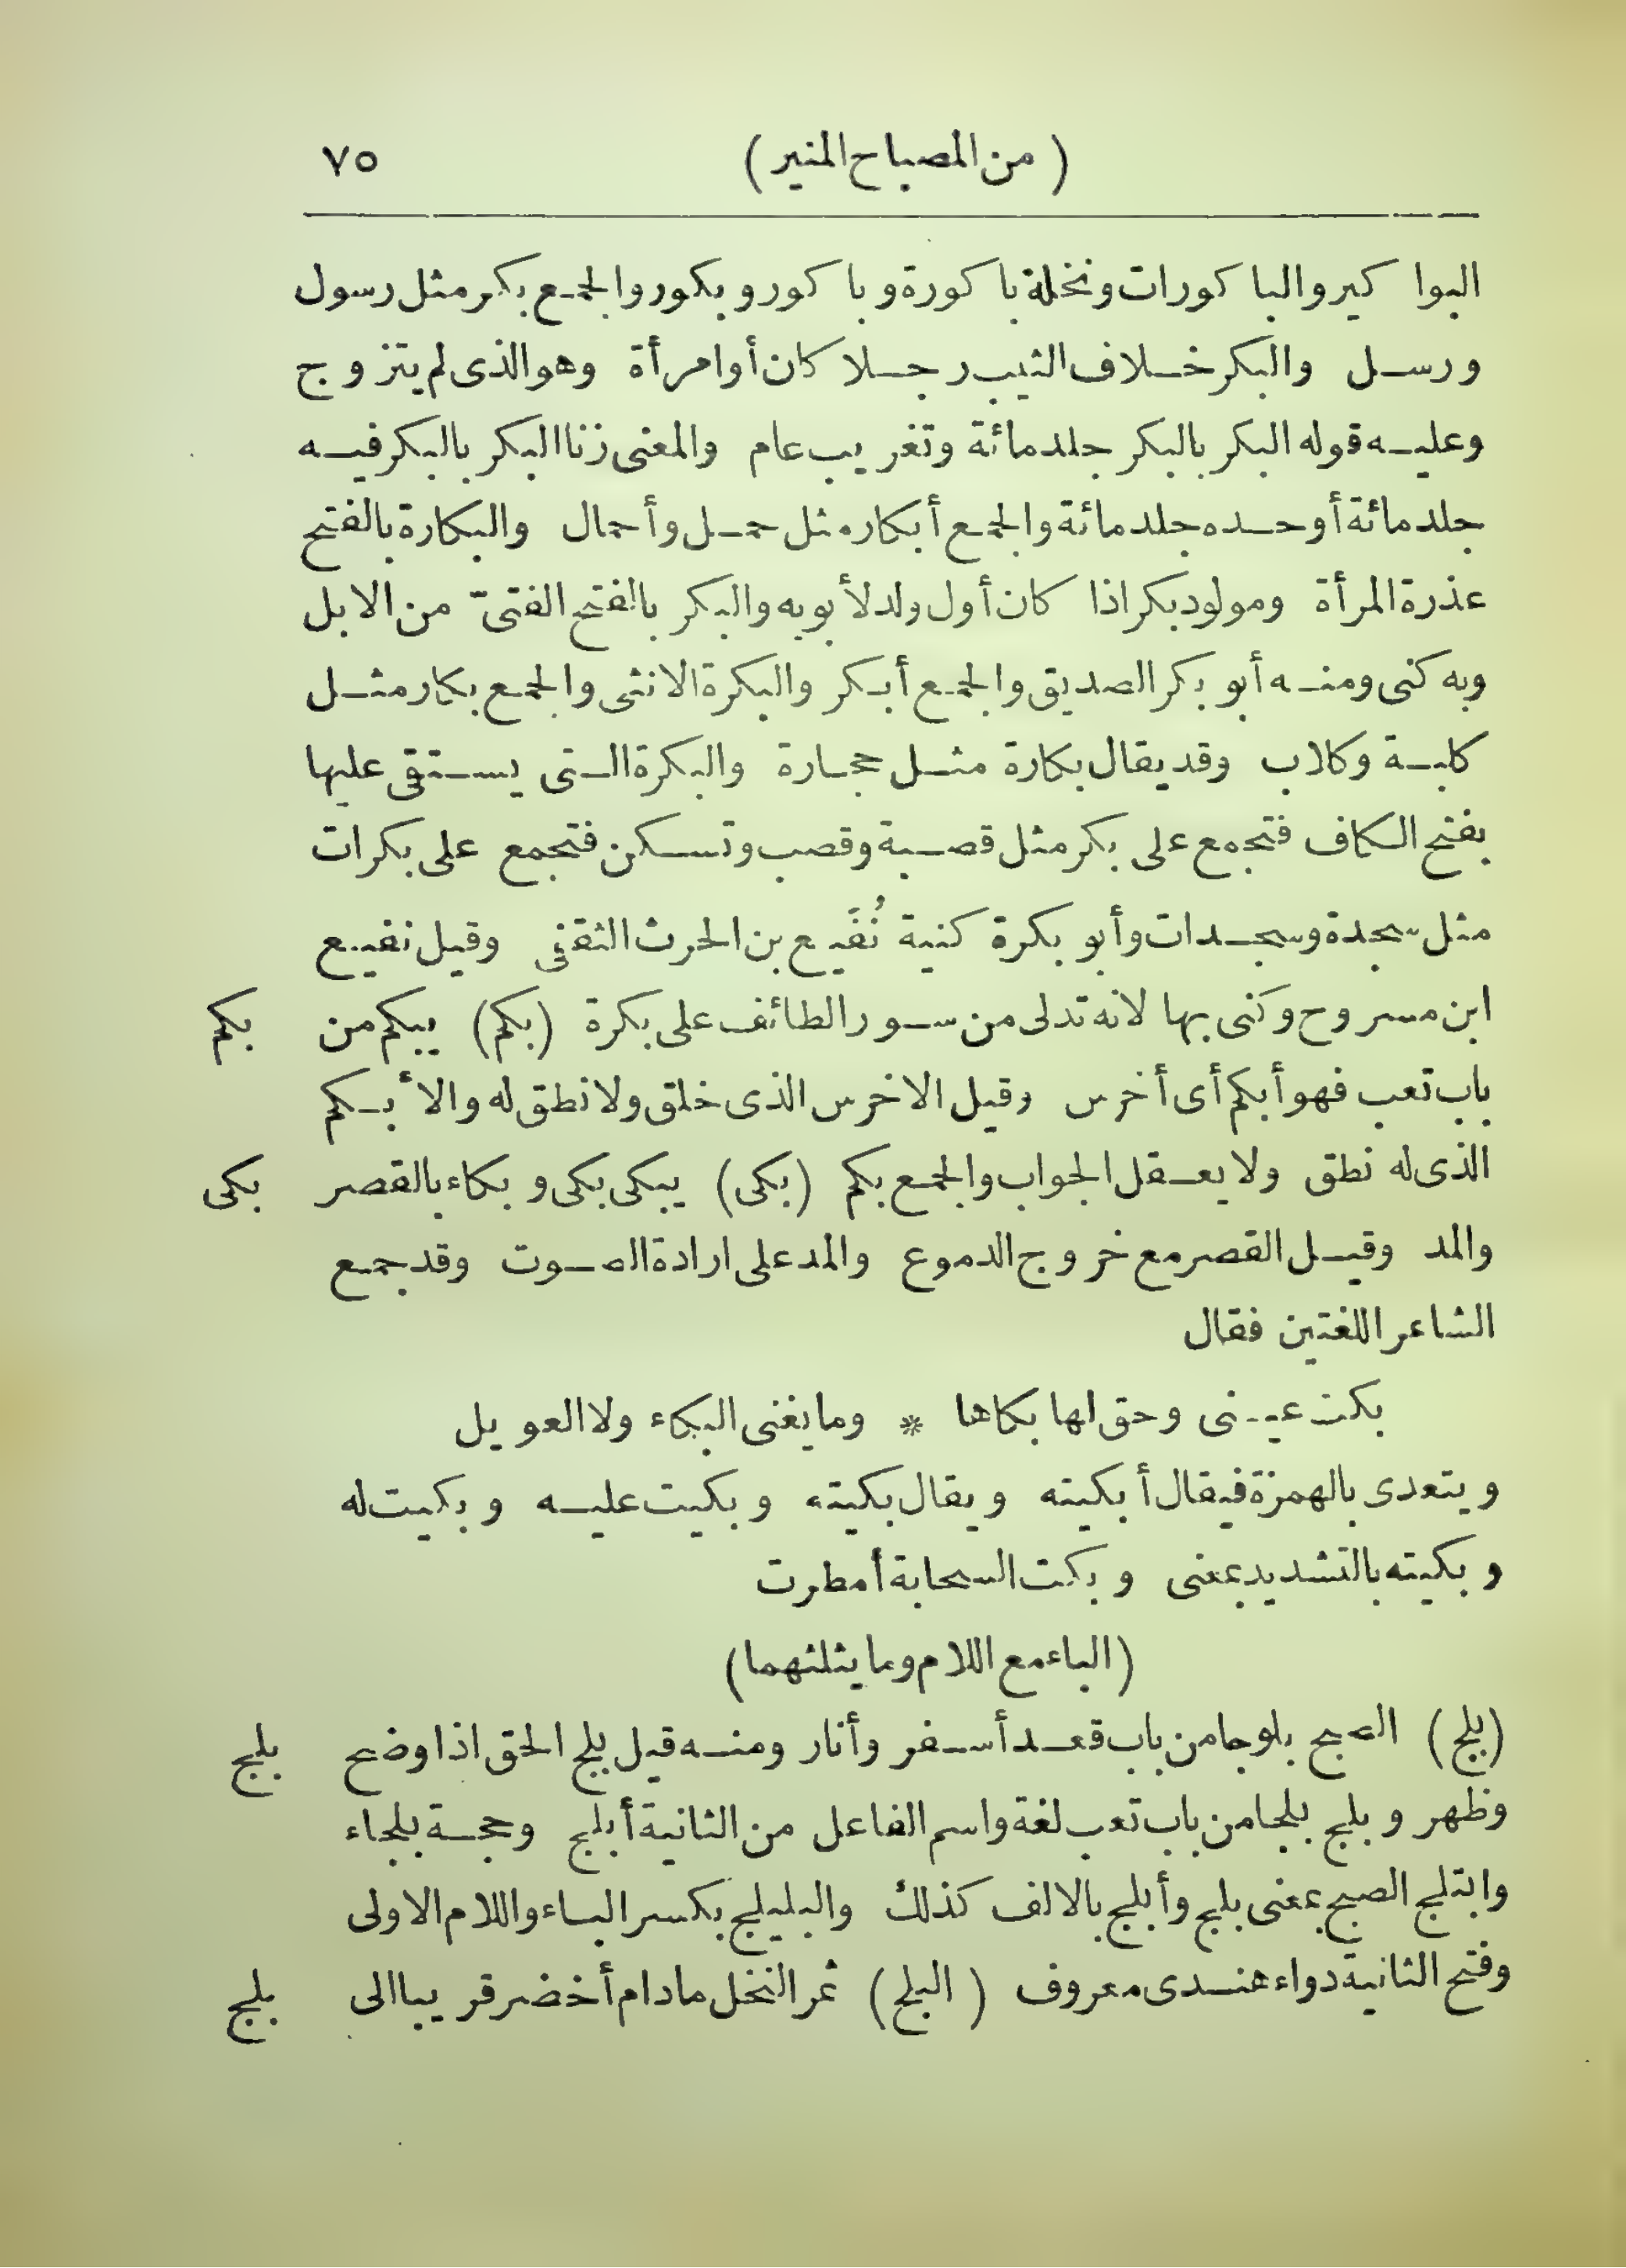 (من المصباح المنير) ٧٥
البواكير والباكورات ونخلة باكورة وباكور وبكور والجمع بكر مثل رسول
ورسل والبكر خلاف الثيب رجلا كان أو امرأة وهو الذى لم يتزوج
وعليه قوله البكر بالبكر جلد مائة وتغريب عام والمعنى زنا البكر بالبكر فيه
جلد مائة أو حده جلد مائة والجمع أبكار مثل حمل وأحمال والبكارة بالفتح
عذرة المرأة ومولود بكر اذا كان أول ولد لأبويه والبكر بالفتح الفتىّ من الابل
وبه كنى ومنه أبو بكر الصديق والجمع أبكر والبكرة الانثى والجمع بكار مثل
كلبة وكلاب وقد يقال بكارة مثل حجارة والبكرة التى يستقى عليها
بفتح الكاف فتجمع على بكر مثل قصبة وقصب وتسكن فتجمع على بكرات
مثل سجدة وسجدات وأبو بكرة كنية نُفَيع بن الحرث الثقفى وقيل نفيع
ابن مسروح وكنى بها لانه تدلى من سور الطائف على بكرة (بكم) يبكم من بكم
باب تعب فهو أبكم أى أخرس وقيل الاخرس الذى خلق ولا نطق له والأبكم
الذى له نطق ولا يعقل الجواب والجمع بكم (بكى) يبكى بكى وبكاء بالقصر بكى
والمد وقيل القصر مع خروج الدموع والمد على ارادة الصوت وقد جمع
الشاعر اللغتين فقال
بكت عينى وحق لها بكاها * وما يغنى البكاء ولا العويل
ويتعدى بالهمزة فيقال أبكيته ويقال بكيته وبكيت عليه وبكيت له
وبكيته بالتشديد بمعنى وبكت السحابة أمطرت
(الباء مع اللام وما يثلثهما)
(بلج) الصبح بلوجا من باب قعد أسفر وأنار ومنه قيل بلج الحق اذا وضح بلج
وظهر وبلج بلجا من باب تعب لغة واسم الفاعل من الثانية أبلج وحجة بلجاء
وابتلج الصبح بمعنى بلج وأبلج بالالف كذلك والبليلج بكسر الباء واللام الاولى
وفتح الثانية دواء هندى معروف (البلح) ثمر النخل ما دام أخضر قريبا الى بلج